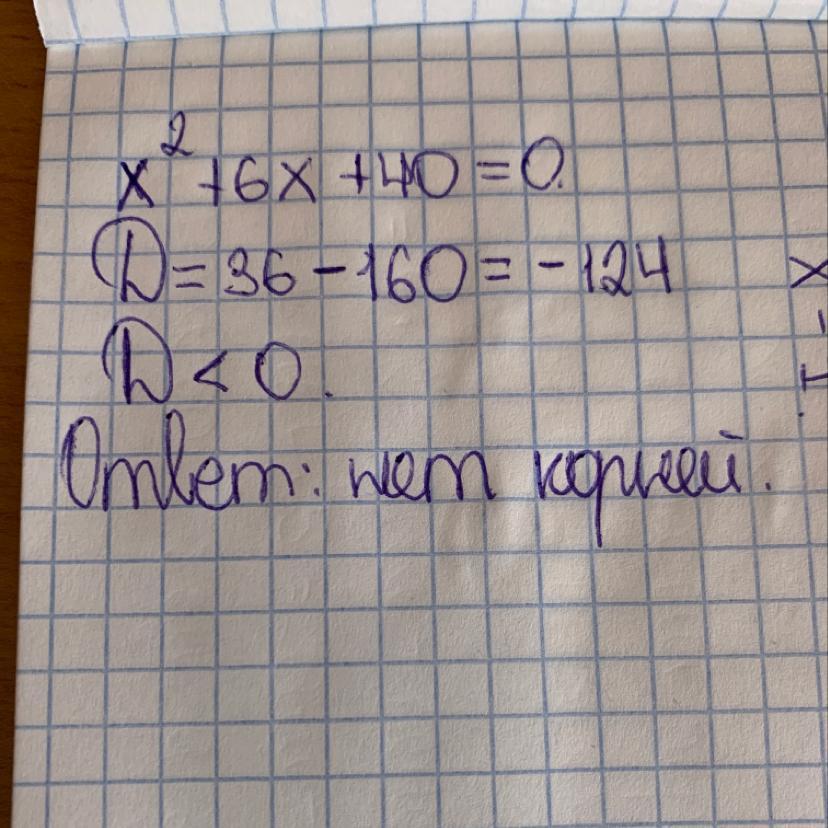 x² + 6x + 40 = 0.
D = 36 - 160 = - 124
D < 0.
Ответ: нет корней.